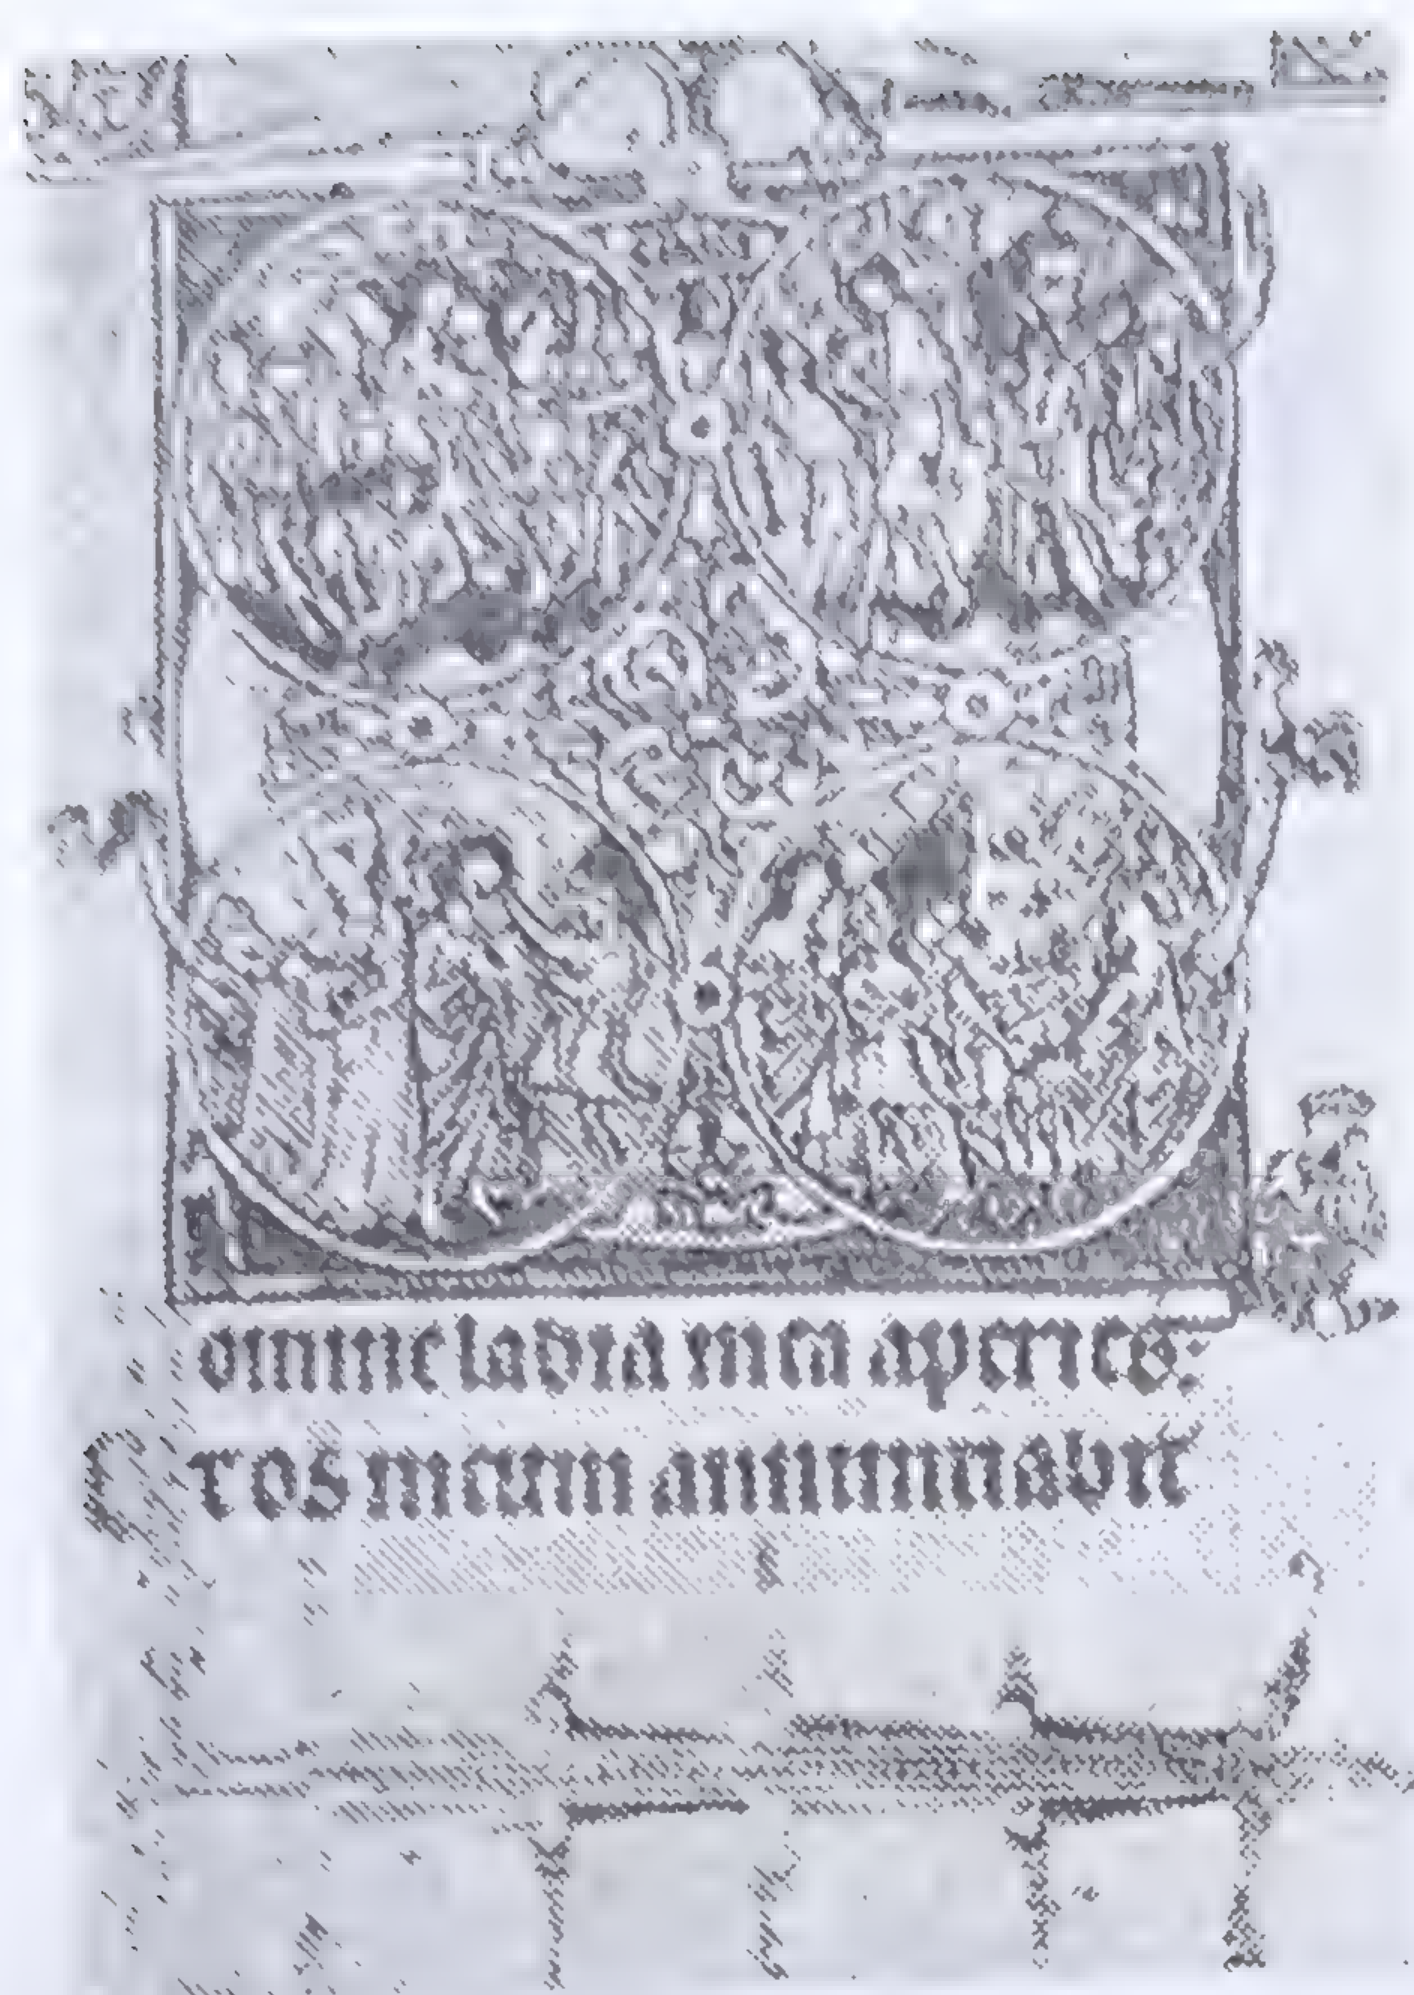 omine labia mea aperies:
Et os meum annunciabit